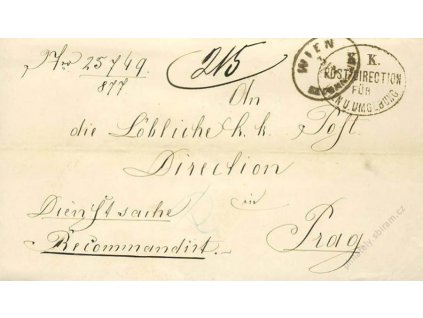 Nro 25749.
877
215
WIEN
K. K.
POSTDIRECTION
FÜR
WIEN U. UMGEBUNG
An
die Löbliche k. k. Post
Direction
in
Prag
Dienstsache
Recommandirt.